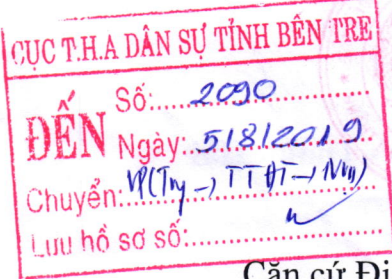 CỤC T.H.A DÂN SỰ TỈNH BẾN TRE
ĐẾN
Số:.....2090.....
Ngày:..5/8/2019
Chuyển:
Lưu hồ sơ số:.....
Căn cứ Đi